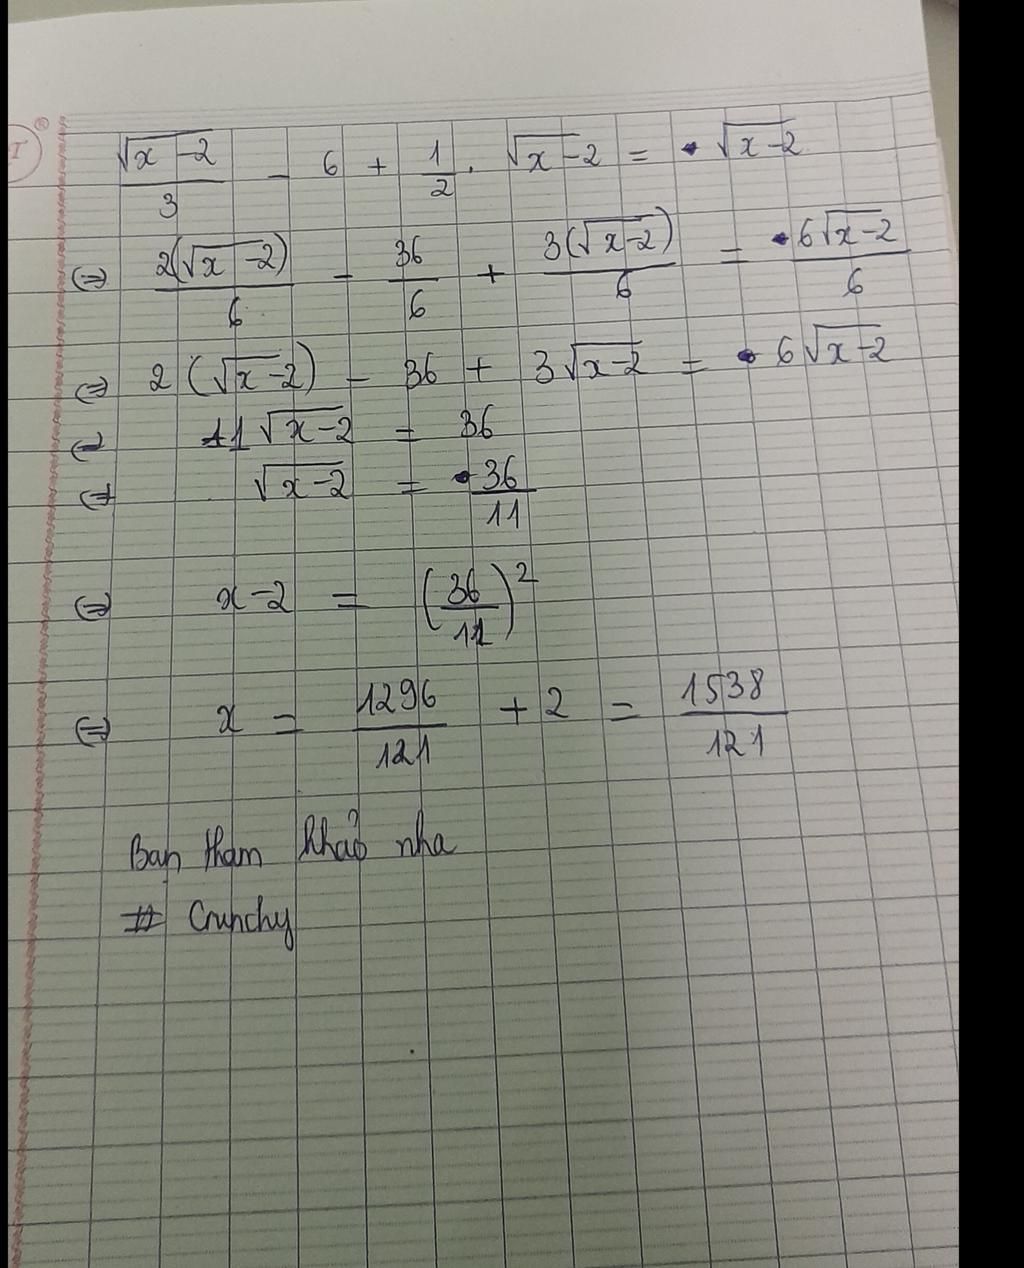 √(x-2)/3 - 6 + 1/2 . √(x-2) = √(x-2)
⇔ 2(√(x-2))/6 - 36/6 + 3(√(x-2))/6 = 6√(x-2)/6
⇔ 2(√(x-2)) - 36 + 3√(x-2) = 6√(x-2)
⇔ 11√(x-2) = 36
⇔ √(x-2) = 36/11
⇔ x-2 = (36/11)²
⇔ x = 1296/121 + 2 = 1538/121
Bạn tham khảo nha
# Crunchy